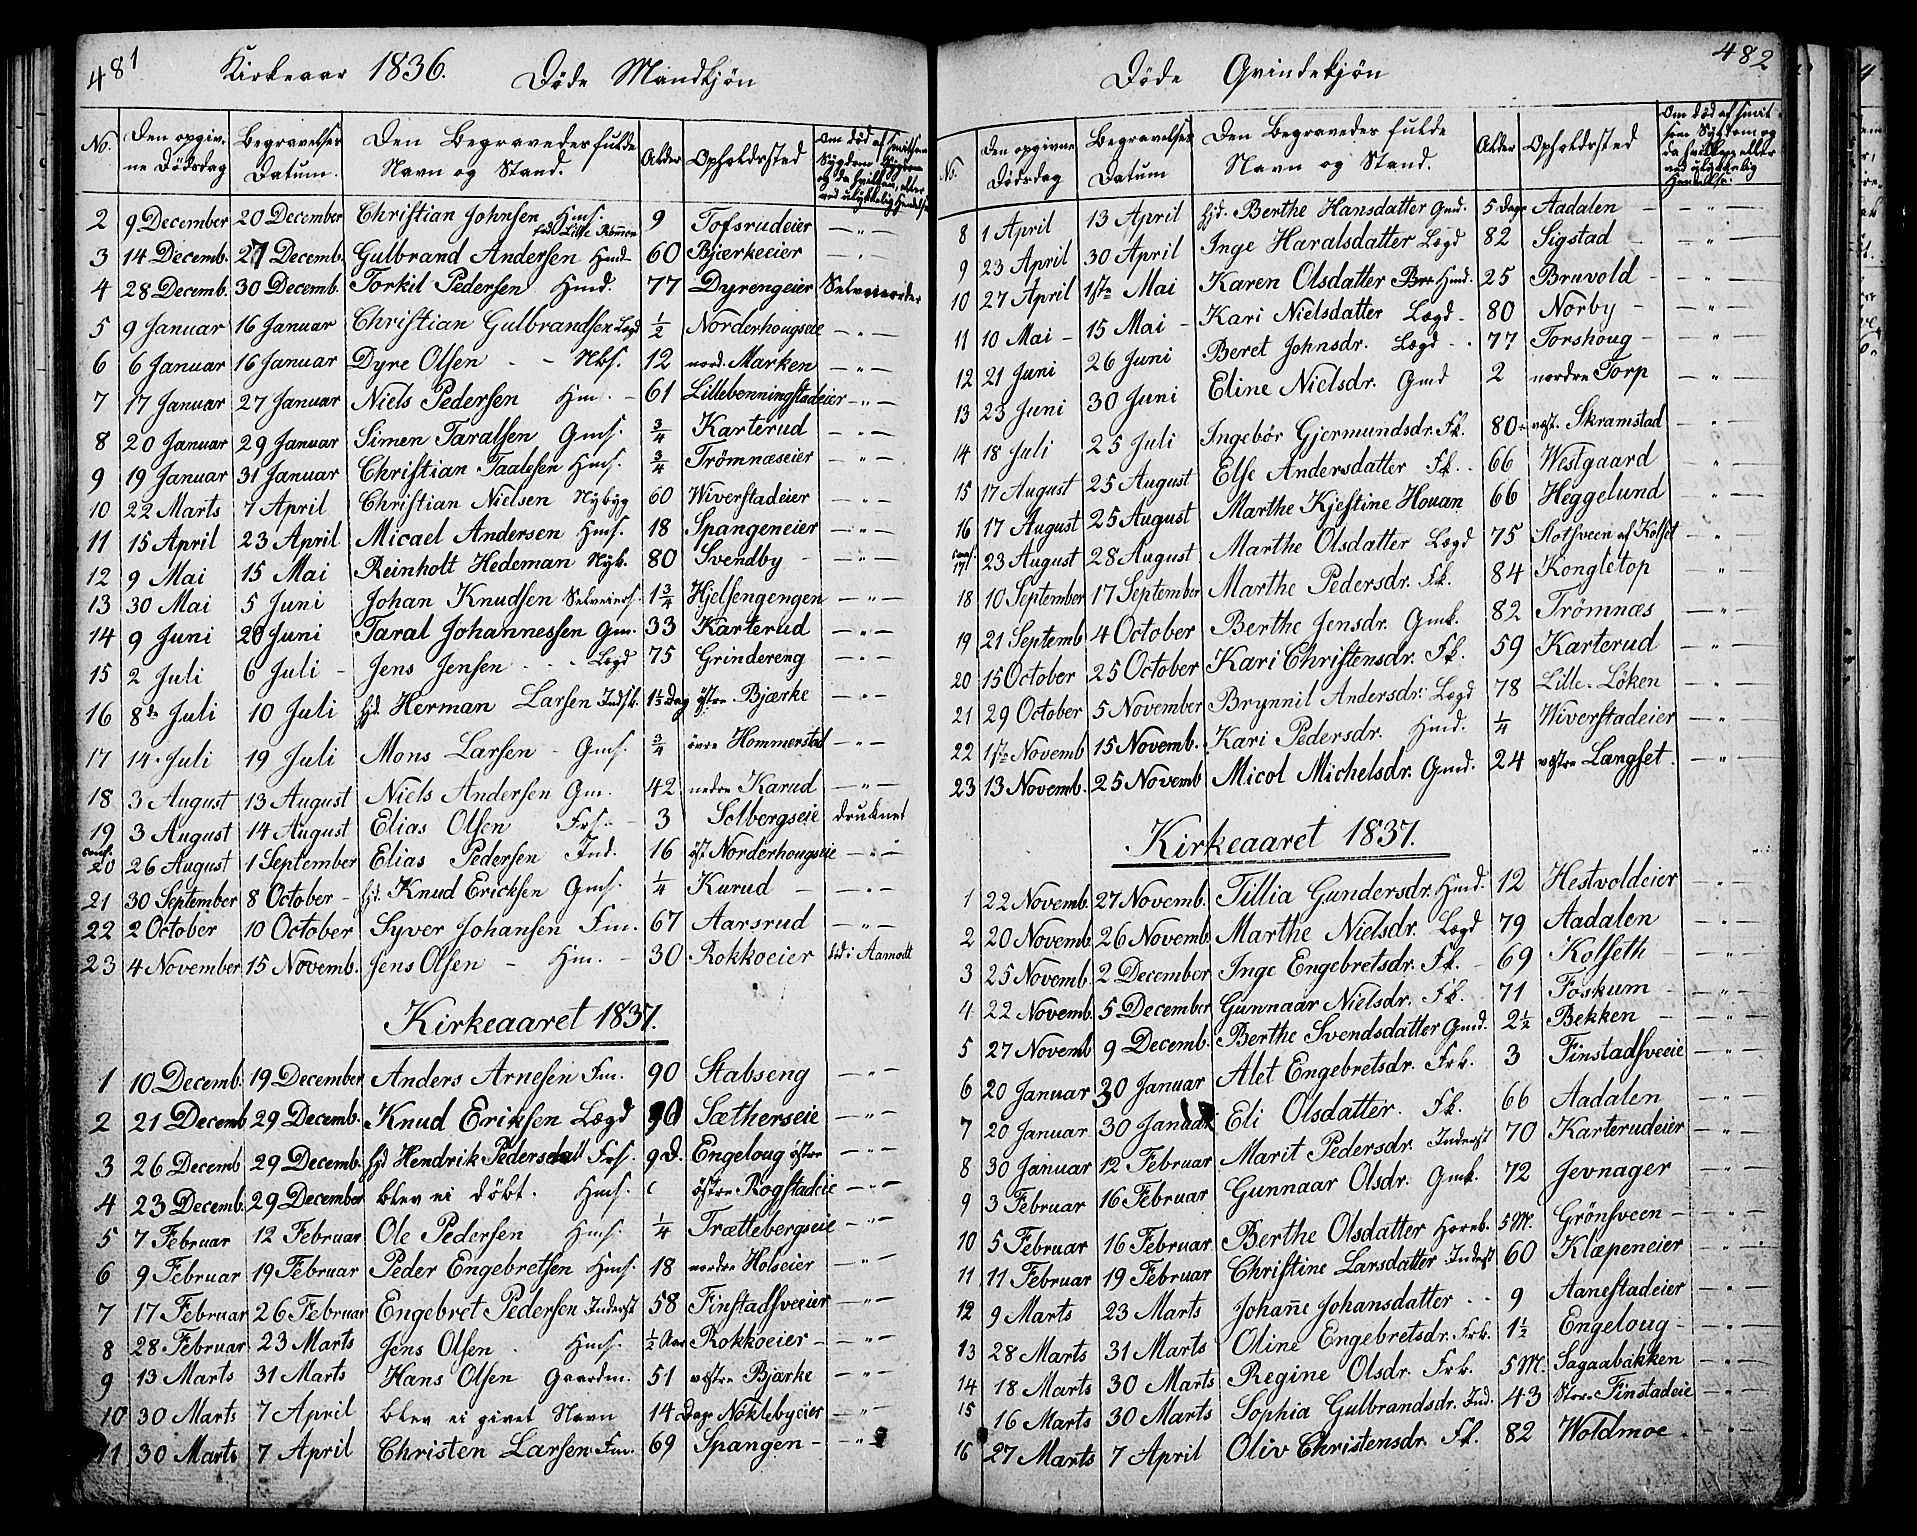 481 Kirkeaar 1836. Döde Mandkjön
No. Den opgivne Dödsdag Begravelses Datum. Den Begravedes fulde Navn og Stand. Alder Opholdssted Om död af smitsom Sygdom og da hvilken, eller ved ulykkelig Hendelse
2 9 December 20 December Christian Johnsen Hms. 9 Tofsrudeier — „ —
3 14 Decemb. 27 Decemb. Gulbrand Andersen Hmd 60 Bjærkeeier — „ —
4 28 Decemb. 30 Decemb. Torkil Pedersen Hmd. 77 Dyrengeier Selvmorder
5 9 Januar 16 Januar Christian Gulbrandsen Lægd ½ Norderhougseie — „ —
6 6 Januar 16 Januar Dyre Olsen - - Nbs. 12 nord. Marken — „ —
7 17 Januar 27 Januar Niels Pedersen Hm. - 61 Lillebenningstadeier — „ —
8 20 Januar 29 Januar Simen Taralsen Gms. ¾ Karterud — „ —
9 19 Januar 31 Januar Christian Taalesen Hms. ¾ Trömnæseier — „ —
10 22 Marts 7 April Christian Nielsen Nybyg 60 Wiverstadeier — „ —
11 15 April 23 April Micael Andersen Hms. 18 Spangeneier — „ —
12 9 Mai 15 Mai Reinholt Hedeman Nyb. 80 Svendby — „ —
13 30 Mai 5 Juni Johan Knudsen Selveiers. 1¾ Hjelsengengen — „ —
14 9 Juni 20 Juni Taral Johannessen Gm. 33 Karterud — „ —
15 2 Juli 6 Juli - Jens Jensen - - - Lægd 75 Grindereng — „ —
16 8de Juli 10 Juli hjd. Herman Larsen Indst. 1½ Dag östre Bjærke — „ —
17 14. Juli 19 Juli Mons Larsen - Gms. ¾ övre Hommerstad — „ —
18 3 August 13 August Niels Andersen Gm. 42 nedre Karud — „ —
19 3 August 14 August Elias Olsen Frs. - 3 Solbergseie druknet
20 26 August 1 September Elias Pedersen Ind. 16 öst. Norderhougseie — „ —
21 30 September 8 October - hjd. Knud Ericksen Gms. ¼ Kurud — „ —
22 2 October 10 October Syver Johansen Fm. 67 Aarsrud — „ —
23 4 November 15 Novemb. Jens Olsen - Hm. - 30 Rokkoeier död i Aamodt
Kirkeaaret 1837.
1 10 Decemb. 19 December Anders Arnesen Fm. 90 Stabseng — „ —
2 21 Decemb 29 Decemb. Knud Eriksen Lægd 90 Sætherseie — „ —
3 26 Decemb 29 Decemb. hjd Hendrik Pedersen Frs. 9 D. Engeloug östre — „ —
4 23 Decemb. 29 December blev ei döbt. Hms. östre Rogstadeie — „ —
5 7 Februar 12 Februar Ole Pedersen Hms. ¼ Trættebergseie — „ —
6 9 Februar 19 Februar Peder Engebretsen Hms. 18 nordre Holseier — „ —
7 17 Februar 26 Februar Engebret Pedersen Inderst 58 Finstadsveeier — „ —
8 28 Februar 23 Marts Jens Olsen . Hms. ½ Aar Rokkoeier — „ —
9 13 Marts 31 Marts Hans Olsen Gaardm. 51 vestre Bjærke — „ —
10 30 Marts 7 April blev ei givet Navn 14 Dage Noklebyeier — „ —
11 30 Marts 7 April Christen Larsen Fm. 69 Spangen - — „
Döde Qvindekjön 482
No. Den opgivne Dödsdag Begravelses Datum Den Begravedes fulde Navn og Stand. Alder Opholdssted Om död af smitsom Sygdom og da hvilken eller ved ulykkelig Hendelse.
8 1 April 13 April hjd. Berthe Hansdatter Gmd. 5 Dage Aadalen - — „ —
9 23 April 30 April Inge Haralsdatter Lægd 82 Sigstad - — „ —
10 27 April 1ste Mai Karen Olsdatter Hmd. 25 Bruvold - — „ —
11 10 Mai - 15 Mai - Kari Nielsdatter Lægd - 80 Norby - — „ —
12 21 Juni 26 Juni Beret Johnsdr. Lægd - - 77 Torshoug - — „ —
13 23 Juni 30 Juni Eline Nielsdr. Gmd 2 nordre Torp — „ —
14 18 Juli 25 Juli Ingebör Gjermundsdr. Fk. 80 vest. Skramstad — „ —
15 17 August 25 August Else Andersdatter Fk. - 66 Westgaard — „ —
16 17 August 25 August Marthe Kjestine Houan 66 Heggelund — „ —
17 23 August 28 August Marthe Olsdatter Lægd 75 Slotsveen af Kolset — „ —
18 10 September 17 September Marthe Pedersdr. Fk. 84 Kongletop — „ —
19 21 Septemb 4 October Berthe Jensdr. Gmk. 82 Trömnæs — „ —
20 15 October 25 October Kari Christensdr. Fk. 59 Karterud — „ —
21 29 October 5 November Brynnil Andersdr. Lægd 78 Lille-Löken — „ —
22 1ste Novemb 15 Novemb. Kari Pedersdr. Hmd. ¼ Wiverstadeier — „ —
23 13 Novemb. 25 Novemb Micol Michelsdr. Gmd. 24 vestre Langset . — „ —
Kirkeaaret 1837.
1 22 Novemb. 27 Novemb. Tillia Gundersdr. Hmd. 12 Hestvoldeier — „ —
2 20 Novemb. 26 Novemb. Marthe Nielsdr. Lægd 79 Aadalen — „ —
3 25 Novemb. 2 December Inge Engebretsdr. Fk. - 69 Kolseth - — „ —
4 22 Novemb. 5 December Gunnaar Nielsdr. Fk. 71 Foskum - — „ —
5 27 Novemb 9 Decemb. Berthe Svendsdatter Gmd. 2½ Bekken - — „ —
6 20 Januar 30 Januar Alet Engebretsdr. Frk. 3 Finstadsveeie — „ —
7 20 Januar 30 Januar Eli Olsdatter. Fk. 66 Aadalen — „ —
8 30 Januar 12 Februar Marit Pedersdr. Inderst 70 Karterudeier — „ —
9 3 Februar 16 Februar Gunnaar Olsdr. Gmk. 72 Jevnager — „ —
10 5 Februar 16 Februar Berthe Olsdatter Horeb. 5 M. Grönsveen - — „ —
11 11 Februar 19 Februar Christine Larsdatter Inderst 60 Klæpeneier — „ —
12 9 Marts 23 Marts Johanne Johansdatter - - 9 Aanestadeier — „ —
13 28 Marts 31 Marts Oline Engebretsdr. Frk. 1½ Engeloug - — „ —
14 18 Marts 30 Marts Regine Olsdr. Frk. 5 M. Sagaabakken — „ —
15 16 Marts 30 Marts Sophia Gulbrandsdr. Ind. 43 Store Finstadeie — „ —
16 27 Marts 7 April Oliv Christensdr. Fk. 82 Woldmoe . — „ —